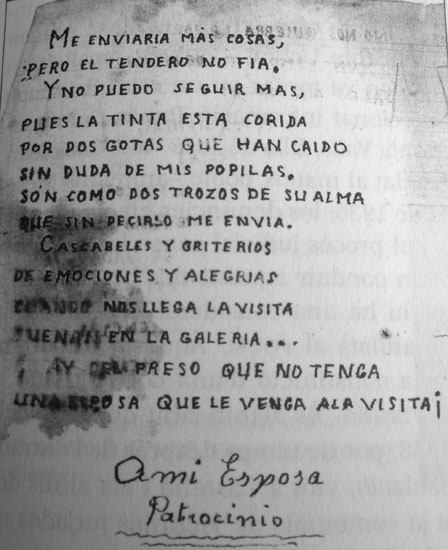 ME ENVIARIA MAS COSAS,
PERO EL TENDERO NO FIA.
Y NO PUEDO SEGUIR MAS,
PUES LA TINTA ESTA CORIDA
POR DOS GOTAS QUE HAN CAIDO
SIN DUDA DE MIS POPILAS.
SON COMO DOS TROZOS DE SU ALMA
QUE SIN DECIRLO ME ENVIA.
CASCABELES Y GRITERIOS
DE EMOCIONES Y ALEGRIAS
CUANDO NOS LLEGA LA VISITA
SUENAN EN LA GALERIA...
¡ AY DEL PRESO QUE NO TENGA
UNA ESPOSA QUE LE VENGA A LA VISITA¡
A mi Esposa
Patrocinio